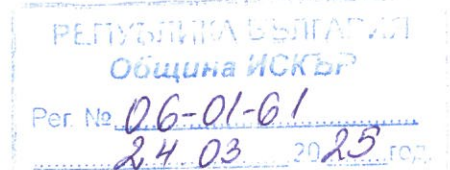 РЕПУБЛИКА БЪЛГАРИЯ
Община ИСКЪР
Рег. № 06-01-61
24.03 2025 год.